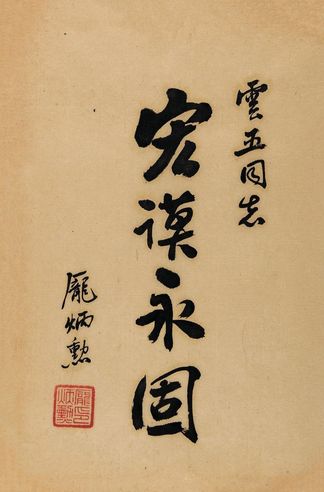 雲五同志
宏謨永固
龐炳勲
龐炳勳印